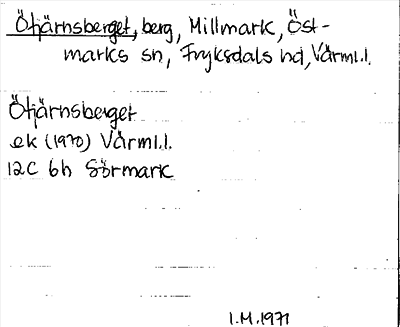 Ötjärnsberget, berg, Millmark, Öst-
marks sn, Fryksdals hd, Värml.l.
Ötjärnsberget
ek (1970) Värml.l.
12C 6h Sörmark
I.M.1971